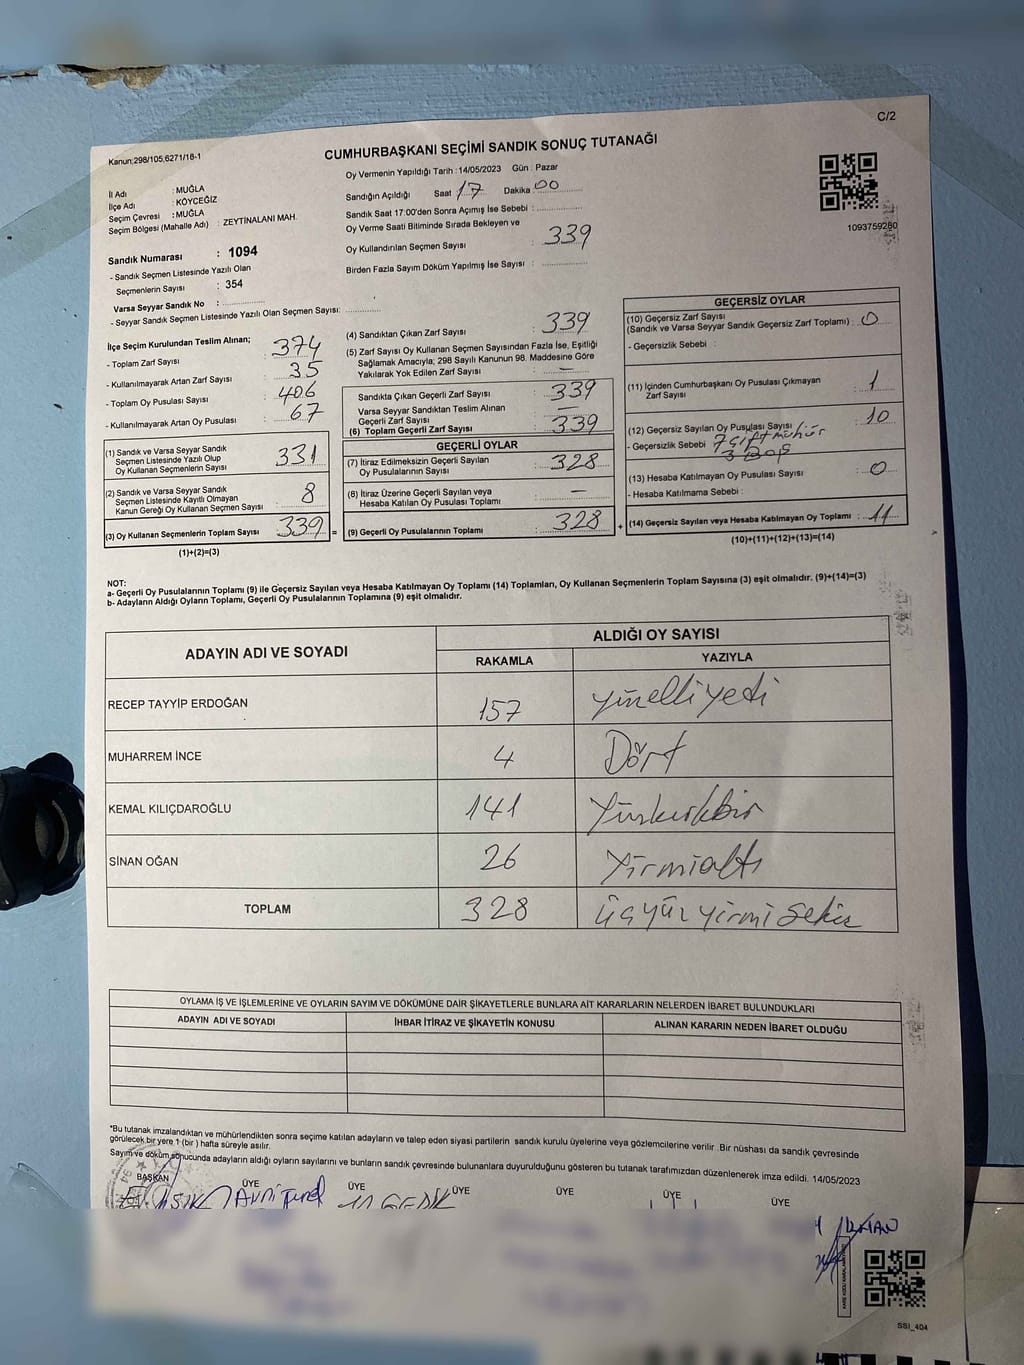 C/2
Kanun:298/105;6271/16-1
CUMHURBAŞKANI SEÇİMİ SANDIK SONUÇ TUTANAĞI
İl Adı : MUĞLA
İlçe Adı : KÖYCEĞİZ
Seçim Çevresi : MUĞLA
Seçim Bölgesi (Mahalle Adı) : ZEYTİNALANI MAH.
Sandık Numarası : 1094
- Sandık Seçmen Listesinde Yazılı Olan
Seçmenlerin Sayısı : 354
Varsa Seyyar Sandık No :
- Seyyar Sandık Seçmen Listesinde Yazılı Olan Seçmen Sayısı:
Oy Vermenin Yapıldığı Tarih :14/05/2023 Gün : Pazar
Sandığın Açıldığı Saat 17 Dakika 00
Sandık Saat 17:00'den Sonra Açımış İse Sebebi :
Oy Verme Saati Bitiminde Sırada Bekleyen ve
Oy Kullandırılan Seçmen Sayısı : 339
Birden Fazla Sayım Döküm Yapılmış İse Sayısı :
1093759280
İlçe Seçim Kurulundan Teslim Alınan;
- Toplam Zarf Sayısı : 374
- Kullanılmayarak Artan Zarf Sayısı : 35
- Toplam Oy Pusulası Sayısı : 406
- Kullanılmayarak Artan Oy Pusulası : 67
(1) Sandık ve Varsa Seyyar Sandık
Seçmen Listesinde Yazılı Olup
Oy Kullanan Seçmenlerin Sayısı : 331
(2) Sandık ve Varsa Seyyar Sandık
Seçmen Listesinde Kayıtlı Olmayan
Kanun Gereği Oy Kullanan Seçmen Sayısı : 8
(3) Oy Kullanan Seçmenlerin Toplam Sayısı : 339 =
(1)+(2)=(3)
(4) Sandıktan Çıkan Zarf Sayısı : 339
(5) Zarf Sayısı Oy Kullanan Seçmen Sayısından Fazla İse, Eşitliği
Sağlamak Amacıyla; 298 Sayılı Kanunun 98. Maddesine Göre
Yakılarak Yok Edilen Zarf Sayısı : —
Sandıkta Çıkan Geçerli Zarf Sayısı : 339
Varsa Seyyar Sandıktan Teslim Alınan
Geçerli Zarf Sayısı : —
(6) Toplam Geçerli Zarf Sayısı : 339
GEÇERLİ OYLAR
(7) İtiraz Edilmeksizin Geçerli Sayılan
Oy Pusulalarının Sayısı : 328
(8) İtiraz Üzerine Geçerli Sayılan veya
Hesaba Katılan Oy Pusulası Toplamı : —
(9) Geçerli Oy Pusulalarının Toplamı : 328 +
GEÇERSİZ OYLAR
(10) Geçersiz Zarf Sayısı
(Sandık ve Varsa Seyyar Sandık Geçersiz Zarf Toplamı) : 0
- Geçersizlik Sebebi :
(11) İçinden Cumhurbaşkanı Oy Pusulası Çıkmayan
Zarf Sayısı : 1
(12) Geçersiz Sayılan Oy Pusulası Sayısı : 10
- Geçersizlik Sebebi 7 çift mühür
3 Boş
(13) Hesaba Katılmayan Oy Pusulası Sayısı : 0
- Hesaba Katılmama Sebebi :
(14) Geçersiz Sayılan veya Hesaba Katılmayan Oy Toplamı : 11
(10)+(11)+(12)+(13)=(14)
NOT:
a- Geçerli Oy Pusulalarının Toplamı (9) ile Geçersiz Sayılan veya Hesaba Katılmayan Oy Toplamı (14) Toplamları, Oy Kullanan Seçmenlerin Toplam Sayısına (3) eşit olmalıdır. (9)+(14)=(3)
b- Adayların Aldığı Oyların Toplamı, Geçerli Oy Pusulalarının Toplamına (9) eşit olmalıdır.
ADAYIN ADI VE SOYADI
ALDIĞI OY SAYISI
RAKAMLA YAZIYLA
RECEP TAYYİP ERDOĞAN 157 yüzelliyedi
MUHARREM İNCE 4 Dört
KEMAL KILIÇDAROĞLU 141 Yüzkırkbir
SİNAN OĞAN 26 Yirmialtı
TOPLAM 328 üçyüzyirmi sekiz
OYLAMA İŞ VE İŞLEMLERİNE VE OYLARIN SAYIM VE DÖKÜMÜNE DAİR ŞİKAYETLERLE BUNLARA AİT KARARLARIN NELERDEN İBARET BULUNDUKLARI
ADAYIN ADI VE SOYADI İHBAR İTİRAZ VE ŞİKAYETİN KONUSU ALINAN KARARIN NEDEN İBARET OLDUĞU
*Bu tutanak imzalandıktan ve mühürlendikten sonra seçime katılan adayların ve talep eden siyasi partilerin sandık kurulu üyelerine veya gözlemcilerine verilir. Bir nüshası da sandık çevresinde
görülecek bir yere 1 (bir ) hafta süreyle asılır.
Sayım ve döküm sonucunda adayların aldığı oyların sayılarını ve bunların sandık çevresinde bulunanlara duyurulduğunu gösteren bu tutanak tarafımızdan düzenlenerek imza edildi. 14/05/2023
BAŞKAN ÜYE ÜYE ÜYE ÜYE ÜYE ÜYE
SSI_404